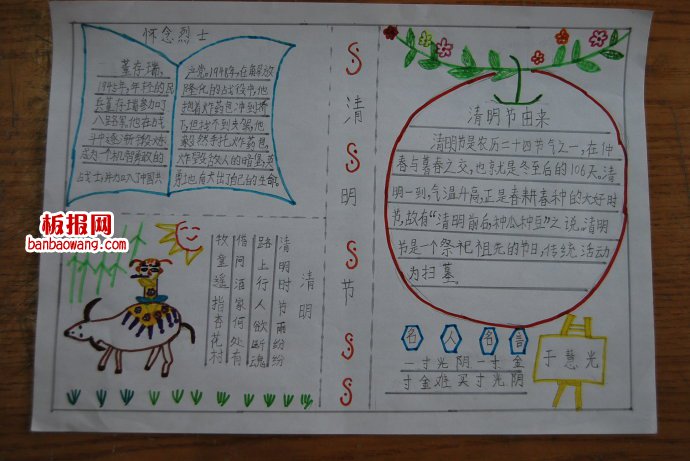 怀念烈士
董存瑞,
1945年,年轻的民
兵董存瑞参加了
八路军,他在战
斗中逐渐锻炼
成为个机智勇敢的
战士,并加入了中国共
产党。1948年,在解放
隆化的战役中,他
抱着炸药包冲到桥
下,但找不到支架,他
毅然手托炸药包,
炸毁敌人的暗堡,英
勇地献出了自己的生命。
板报网
banbaowang.com
清明
清明时节雨纷纷
路上行人欲断魂
借问酒家何处有
牧童遥指杏花村
清
明
节
清明节由来
清明节是农历二十四节气之一,在仲
春与暮春之交,也就是冬至后的106天。清
明一到,气温升高,正是春耕春种的大好时
节,故有“清明前后,种瓜种豆”之说。清明
节是一个祭祀祖先的节日,传统活动
为扫墓。
名人名言
一寸光阴一寸金
寸金难买寸光阴
于慧光